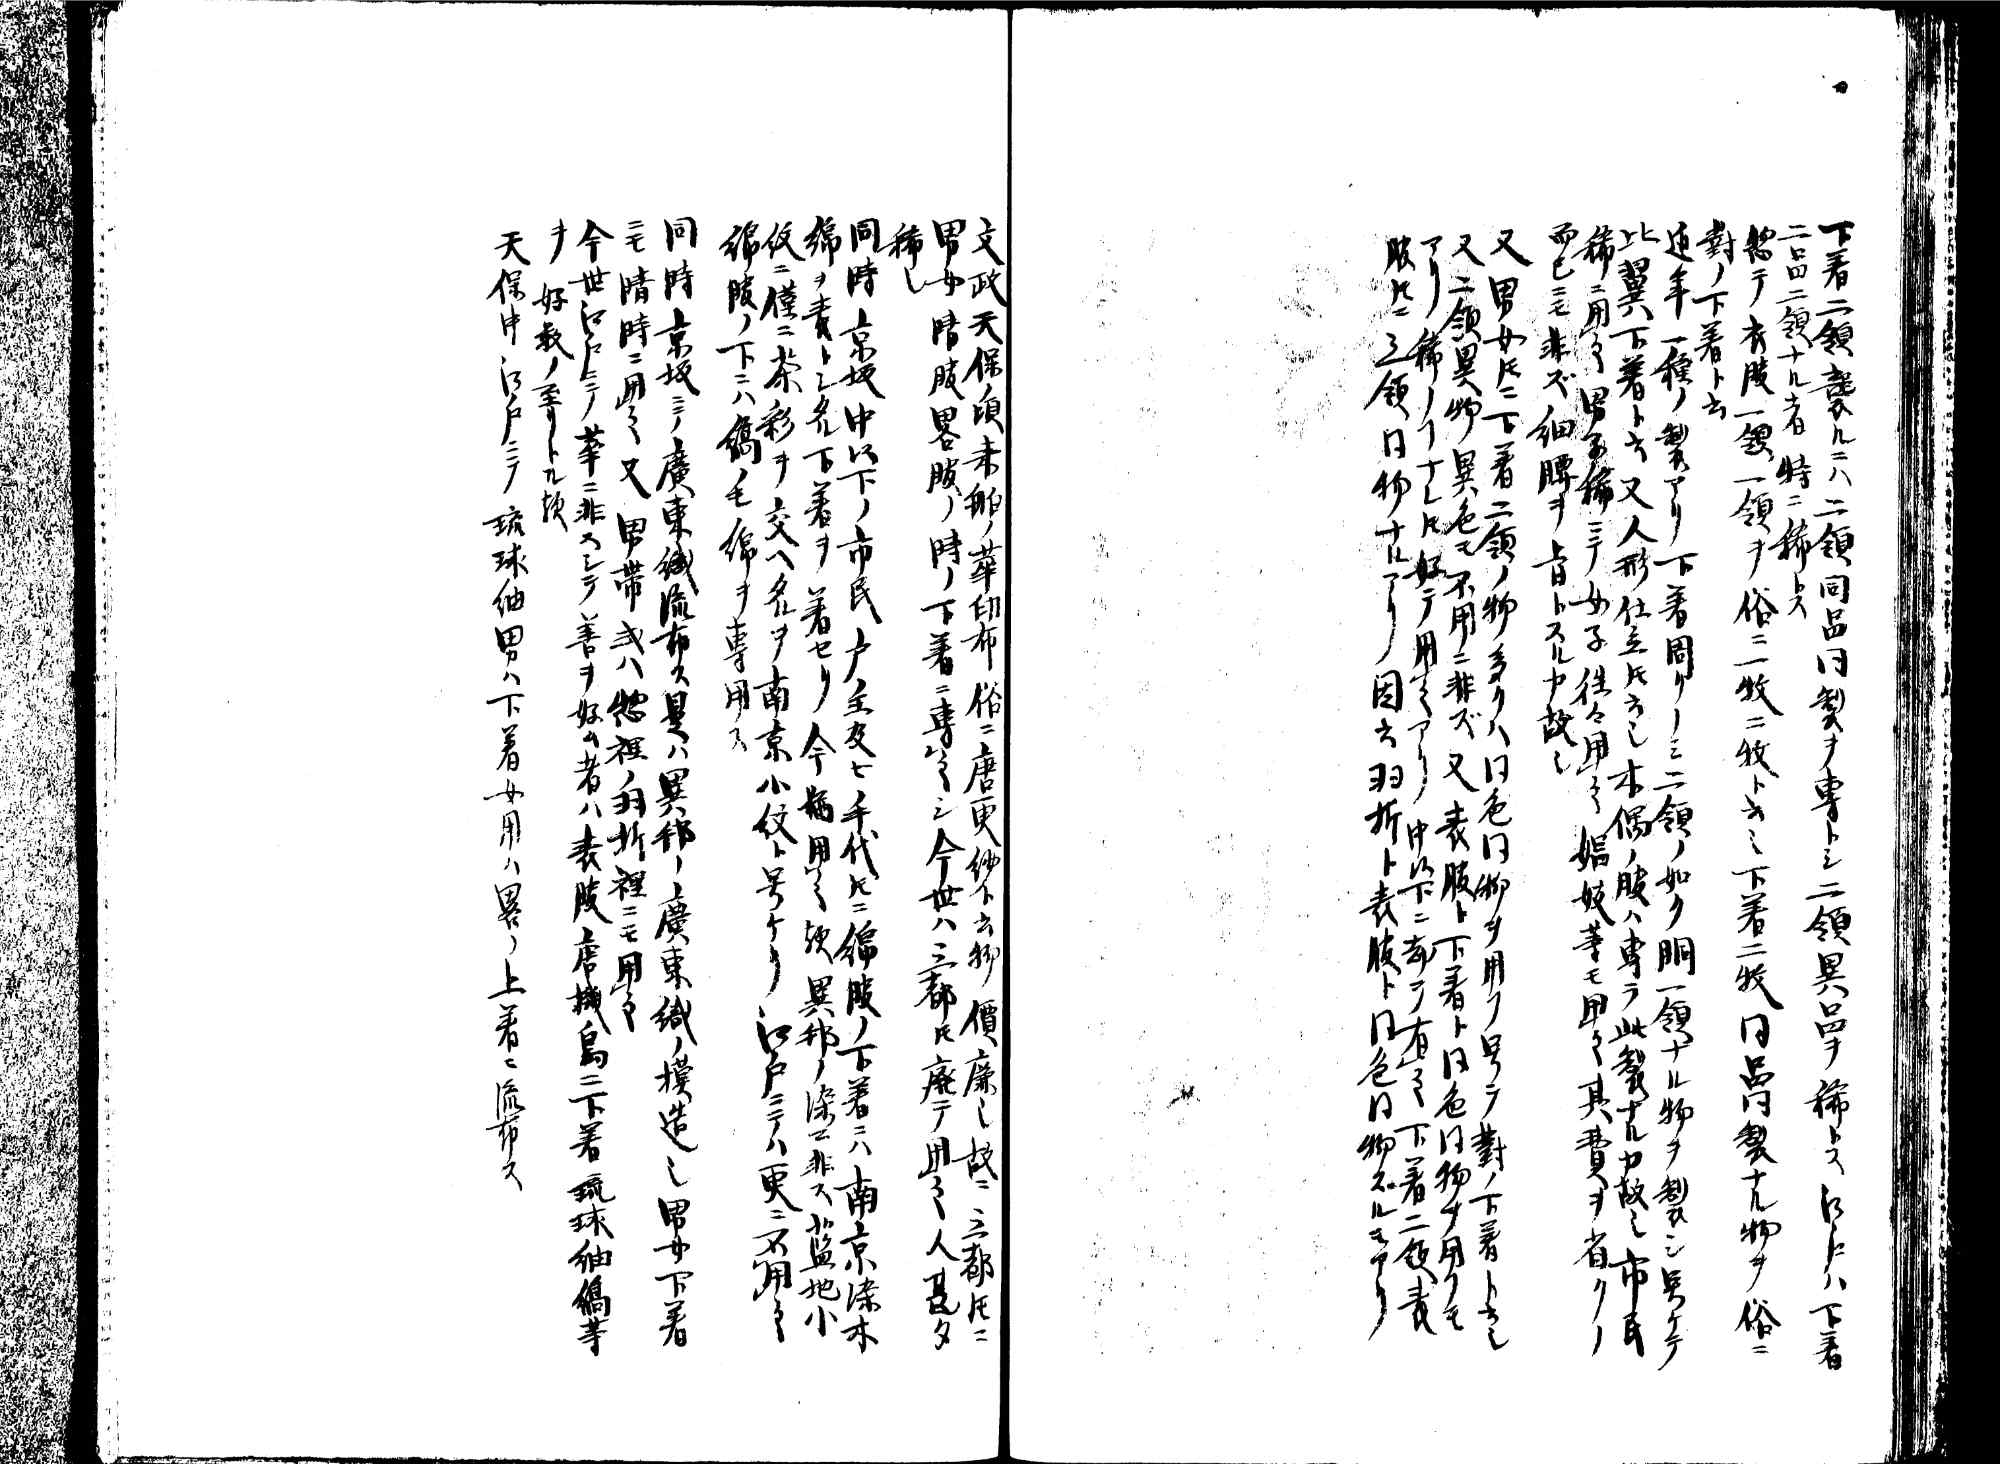 下着二領襲ルニハ二領同品同製ヲ専トシ二領異品ヲ稀トス江戸ハ下着
二品二領ナル者特ニ稀トス
惣テ衣服一領一領ヲ俗ニ一枚二枚ト云也下着二枚同品同製ナル物ヲ俗ニ
對ノ下着ト云
近年一種ノ製アリ下着周リノミ二領ノ如ク胴一領ナル物ヲ製シ号ケテ
比翼下着ト云又人形仕立トモ云也木偶ノ服ハ専ラ此製ナルカ故也市民
稀ニ用フ男子稀ニテ女子往々用フ娼妓等モ用フ其費ヲ省クノ
而已ニモ非ズ細腰ヲ旨トスルカ故也
又男女トモニ下着二領ノ物多クハ同色同物ヲ用フ号テ對ノ下着ト云也
又二領異物異色モ不用ニ非ズ又表服ト下着ト同色同物ヲ用フモ
アリ稀ノコナレトモ好テ用フアリ中以下ニ却テ有之下着二領表
服トモニ三領同物ナルアリ因云羽折ト表服ト同色同物スルモアリ
文政天保ノ頃未舶ノ華印布俗ニ唐更紗ト云物價廉也故ニ三都トモニ
男女晴服畧服ノ時ノ下着ニ専用之シ今世ハ三都トモ廃テ用フ人甚タ
稀也
同時京坂中以下ノ市民戸主及ヒ手代トモニ縞服ノ下着ニハ南京染木
綿ヲ表トシタル下着ヲ着セリ今猶用フ歟異邦ノ染ニ非ス藍地小
紋ニ僅ニ茶彩ヲ交ヘタルヲ南京小紋ト号ケリ江戸ニテハ更ニ不用之
縞服ノ下ニハ縞ノモ綿ヲ専用ス
同時京坂ニテ廣東織流布ス是ハ異邦ノ廣東織ノ模造也男女下着
ニモ晴時ニ用フ又男帯或ハ惣裡ノ羽折裡ニモ用フ
今世江戸ニテ華ニ非スシテ善ヲ好ム者ハ表服唐機島ニ下着琉球紬縞等
ヲ好敷ノ至リトル歟
天保中江戸ニテ琉球紬男ハ下着女用ハ畧ノ上着ニ流布ス